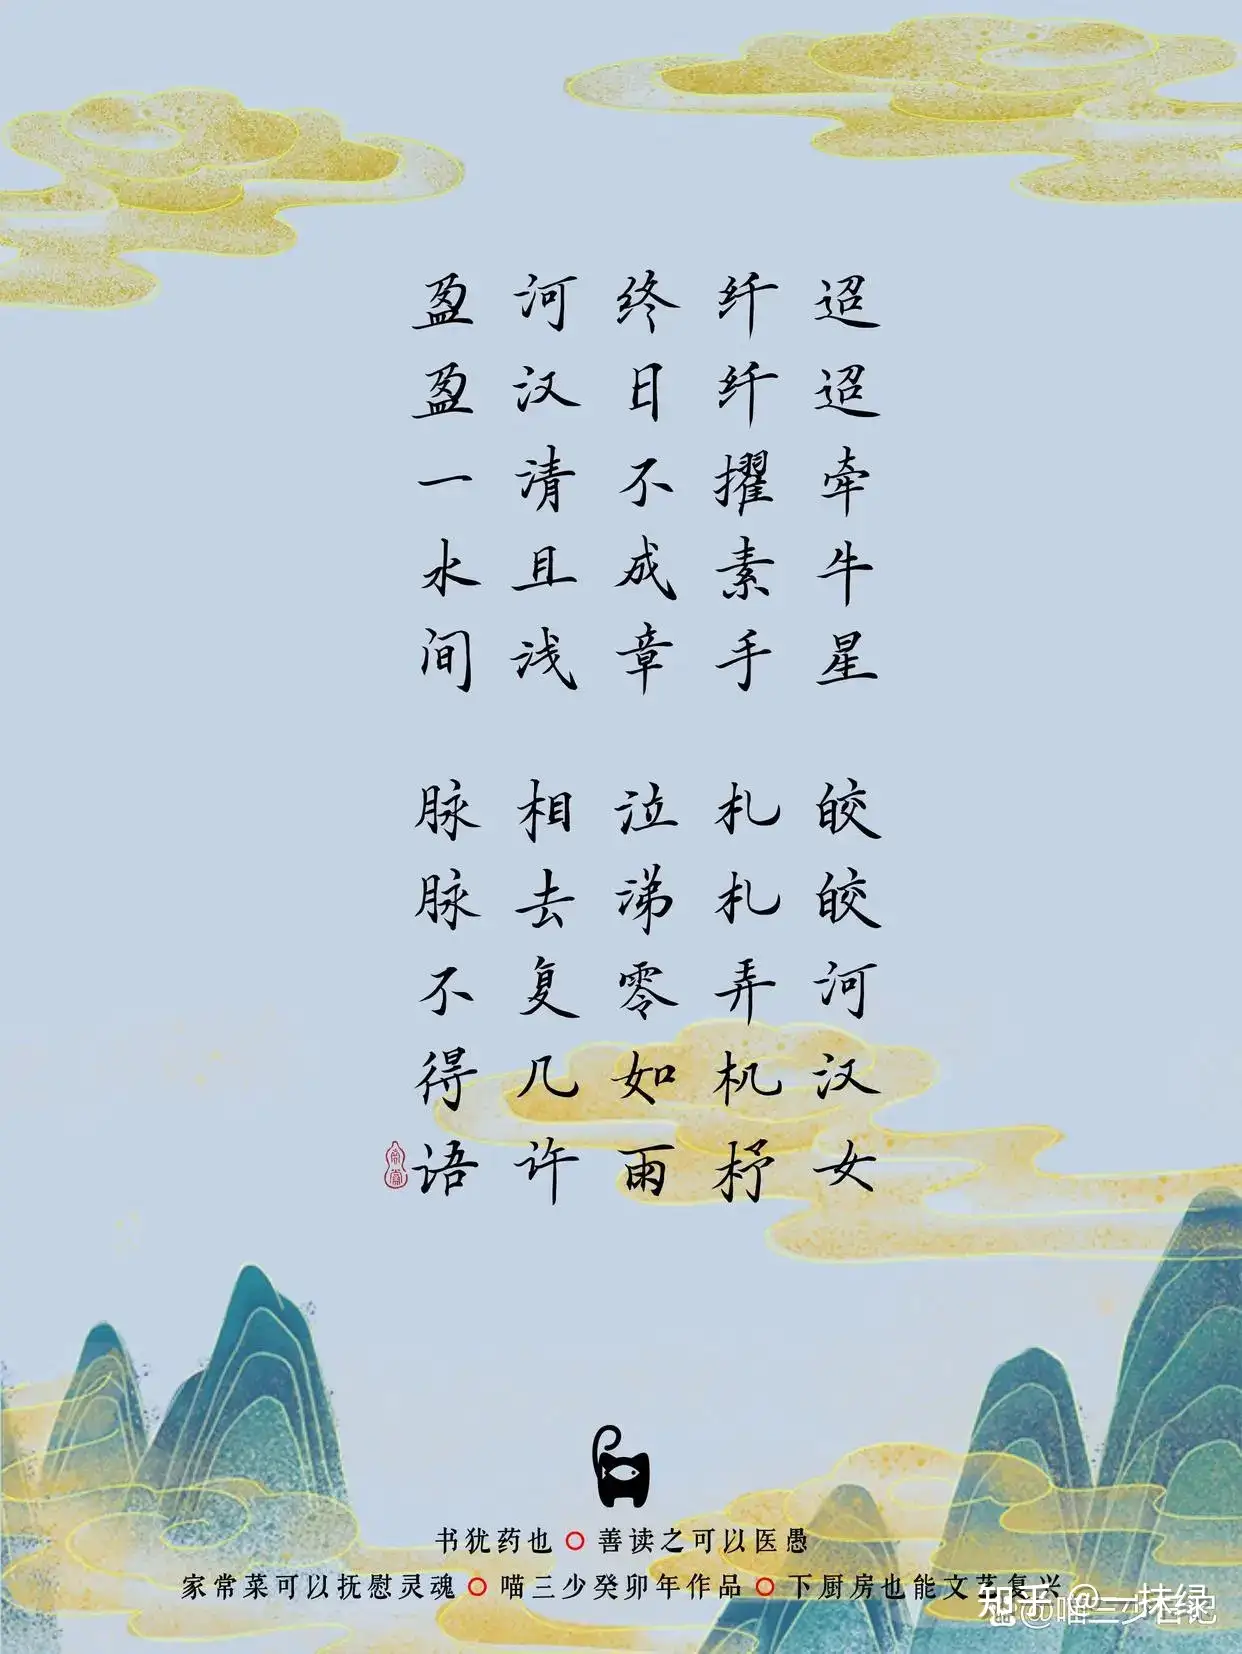 迢迢牵牛星
皎皎河汉女
纤纤擢素手
札札弄机杼
终日不成章
泣涕零如雨
河汉清且浅
相去复几许
盈盈一水间
脉脉不得语
书犹药也 善读之可以医愚
家常菜可以抚慰灵魂 喵三少癸卯年作品 下厨房也能文艺复兴
知乎 @一抹绿
@喵三少